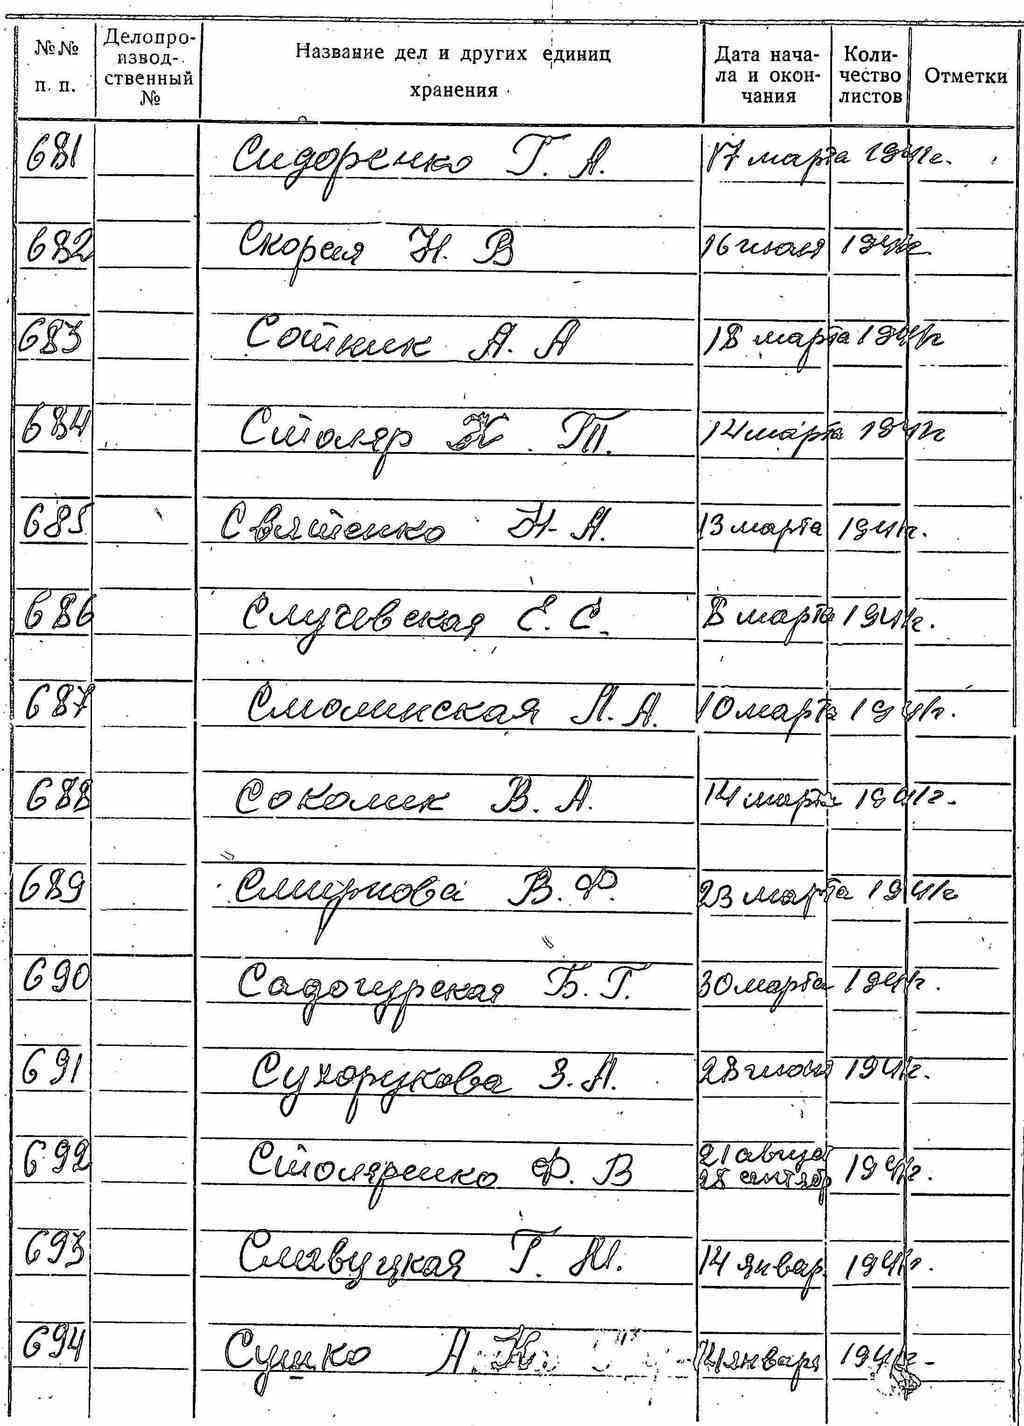 №№ п. п. Делопро-извод-ственный № Название дел и других единиц хранения Дата нача-ла и окон-чания Коли-чество листов Отметки
681 Сидоренко Г. А. 17 марта 1941г.
682 Скорая Н. В 16 июля 1941г
683 Сотник А. А 18 марта 1941г
684 Столяр Т. 14 марта 1941г
685 Святенко Н. А. 13 марта 1941г.
686 Случевская Е. С. 8 марта 1941г.
687 Смолинская Л. А. 10 марта 1941г.
688 Соколик В. А. 14 марта 1941г.
689 Смирнова В. Ф. 23 марта 1941г
690 Садогурская Б. Г. 30 марта 1941г.
691 Сухорукова З. А. 28 1941г.
692 Столяренко Ф. В 21 август 28 сентябр 1941г.
693 Славуцкая Г. М. 14 январ. 1941г.
694 Сушко А 14 января 1941г.